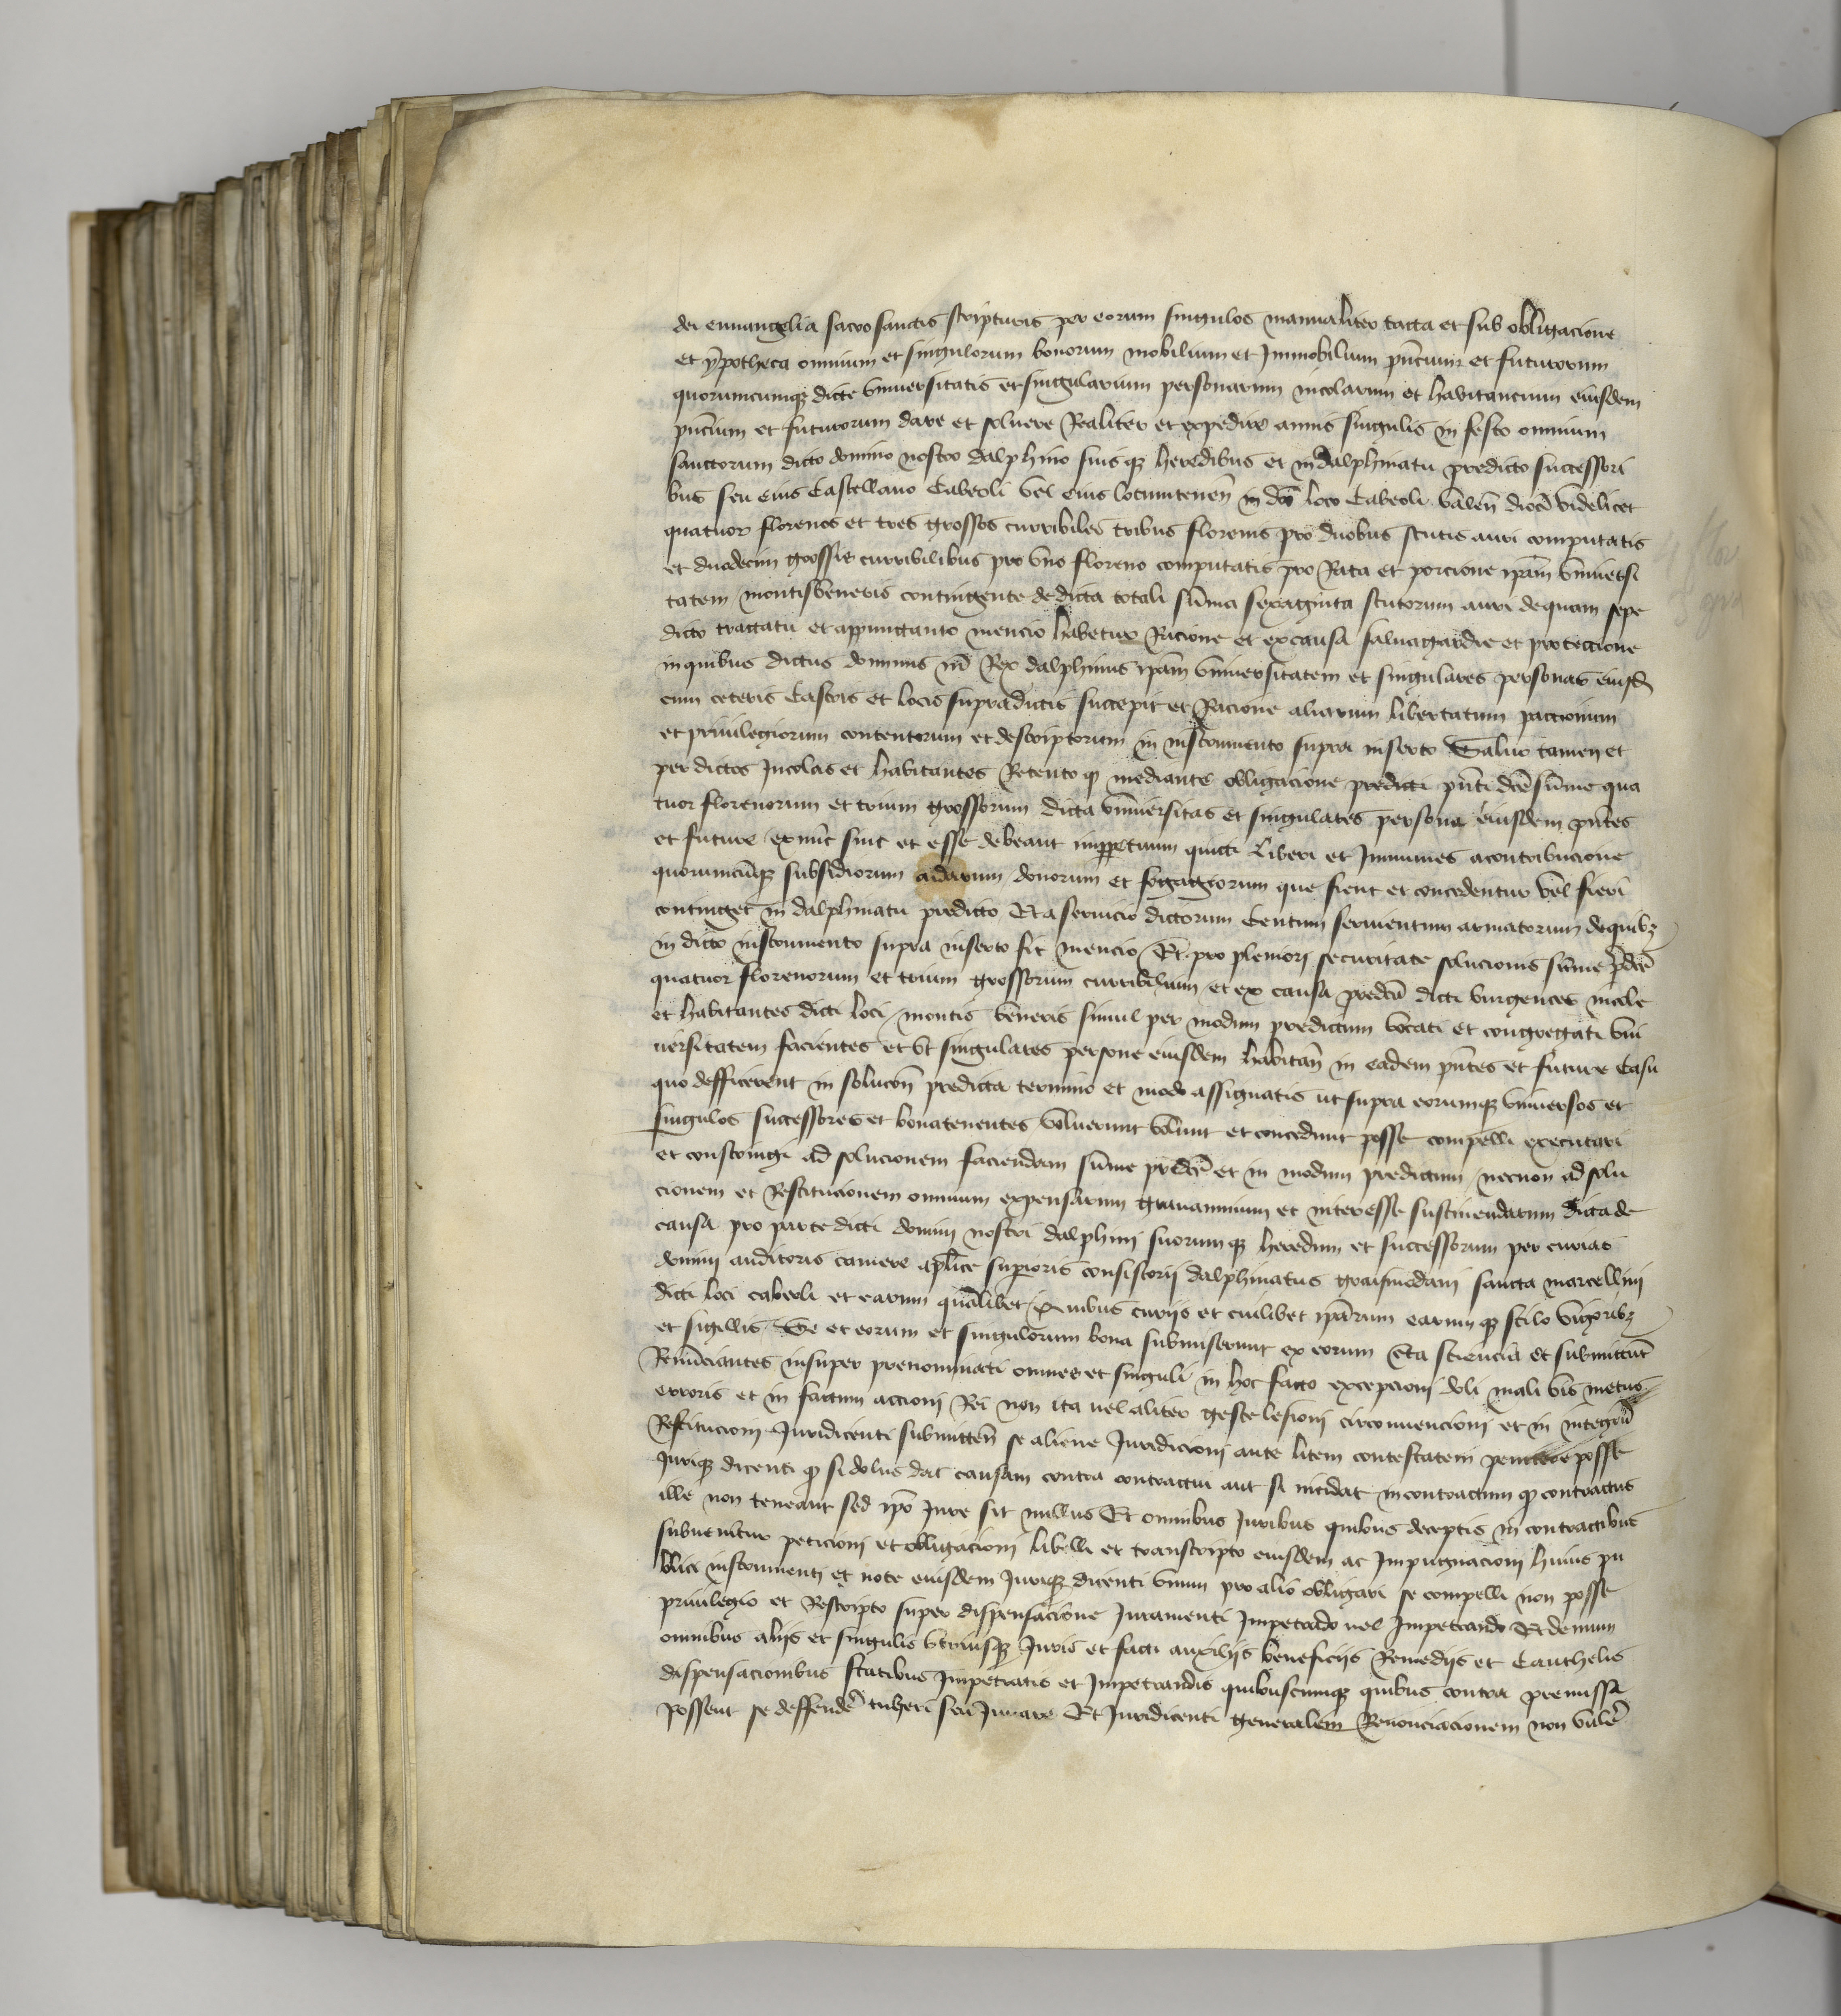 dei euuangelia sacrosanctis scripturis per eorum singulos manualiter tacta et sub obligacione
et ypotheca omnium et singulorum bonorum mobilium et Immobilium pñcium et futurorum
quorumcumq3 dicte vniuersitatis et singularium personarum incolarum et habitancium eiusdem
pñcium et futurorum dare et soluere Realiter et expedire annis singulis in festo omnium
sanctorum dicto domino nostro dalphino suisq3 heredibus et in dalphinatu predicto successori
bus seu eius Castellano Cabeoli vel eius locumteneñ in dco loco Cabeoli valeñ dioc̃ videlicet
quatuor florenos et tres grossos curribiles tribus florenis pro duobus scutis auri computatis
et duodecim grossis curribilibus pro vno floreno computatis pro Rata et porcione ipam̃ vniuersi
tatem montisveneris contingente de dicta totali sum̃a sexaginta scutorum auri de quam sepe
dicto tractatu et appunctanto mencio habetur Racione et ex causa saluagardie et proteccione
in quibus dictus dominus nr̃ Rex dalphinus ipam̃ vniuersitatem et singulares personas eiusd
cum ceteris Castris et locis supradictis succepit et Racione aliarum libertatum pactionum
et priuilegiorum contentorum et descriptorum in instrumento supra inserto Saluo tamen et
per dictos Incolas et habitantes Retento q̃ mediante obligacione predicti pñti dc̃e sum̃e qua
tuor florenorum et trium grossorum dicta vniuersitas et singulares persone eiusdem pñtes
et future ex nũc sint et esse debeant imppetuum quicti liberi et Immunes a contribucione
quorumcũq3 subsidiorum aidarum donorum et fogagiorum que fient et concedentur vel fieri
continget in dalphinatu predicto Et a seruicio dictorum Centum seruientum armatorum de quib3
in dicto instrumento supra inserto fit mencio Et pro pleniori securitate solucionis sum̃e p̃dc̃e
quatuor florenorum et trium grossorum curribilium et ex causa predc̃a dicti burgenses incole
et habitantes dicti loci montis veneris simul per modum predictum vocati et congregati vni
uersitatem facientes et vt singulares persone eiusdem habitañ in eadem pñtes et future Casu
quo defficerent in soluciõn predicta termino et modo assignatis ut supra eorumq3 vniuersos et
singulos successores et bonatenentes voluerunt volunt et concedunt posse compelli executari
et constringi ad solucionem faciendam sum̃e predc̃e et in modum predictum necnon ad solu
cionem et Restitucionem omnium expensarum grauaminum et interesse sustinendarum dicta de
causa pro parte dicti domini nostri dalphini suorumq3 heredum et successorum per curias
domini auditoris camere aplĩce superioris consistorii dalphinatus graisiuodani sancta marcellini
dicti loci cabeoli et earum quãlibet Quibus curijs et cuilibet ipãrum earumq3 stilo vigorib3
et sigillis Se et eorum et singulorum bona submiserunt ex eorum c̃ta sciencia et submittũt
Renũciantes insuper prenominati omnes et singuli in hoc facto excepcioni doli mali vis metus
erroris et in factum accioni Rei non ita uel aliter geste lesioni circonuencioni et in integrũ
Restitucioni Juridicenti submitteñ se aliene Juridicioni ante litem contestatem penitere posse
Juriq3 dicenti q̃ si dolus det causam contra contractui aut si incidat in contractum q̃ contractus
ille non teneant sed ipo Jure sit nullus Et omnibus Juribus quibus deceptis in contractibus
subuenitur peticioni et obligacioni libelli et transcripto eiusdem ac Impugnacioni huius pu
blici instrumenti et note eiusdem Juriq3 dicenti vnum pro alio obligari se compelli non posse
priuilegio et Rescripto super dispensacione Juramenti Impetrado uel Impetrando Et demum
omnibus alijs et singulis vtriusq3 Juris et facti auxilijs beneficijs Remedijs et Cauthelis
dispensacionibus statibus Impetratis et Impetrandis quibuscumq3 quibus contra premissa
possent se deffendẽ tuheri seu Juuare Et Juridicenti generalem Renonciacionem non valẽ